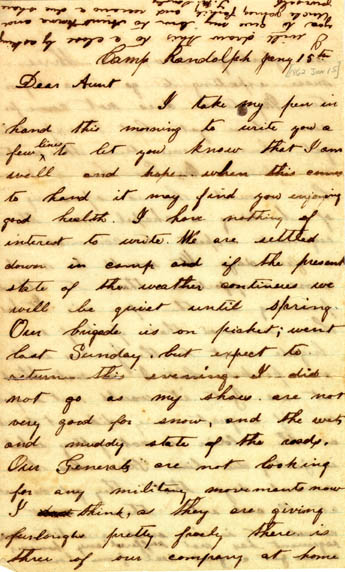 Camp Randolph Jany 15th
[1862 Jan 15]
Dear Aunt
I take my pen in
hand this morning to write you a
few lines to let you know that I am
well and hope when this comes
to hand it may find you enjoying
good health. I have nothing of
interest to write. We are settled
down in camp and if the present
state of the weather continues we
will be quiet until spring.
Our brigade is on picket, went
last Sunday, but expect to
return this evening. I did
not go as my shoes are not
very good for snow, and the wet,
and muddy state of the roads.
Our Generals are not looking
for any military movements now
I think, as they are giving
furloughs pretty freely there is
three of our company at home